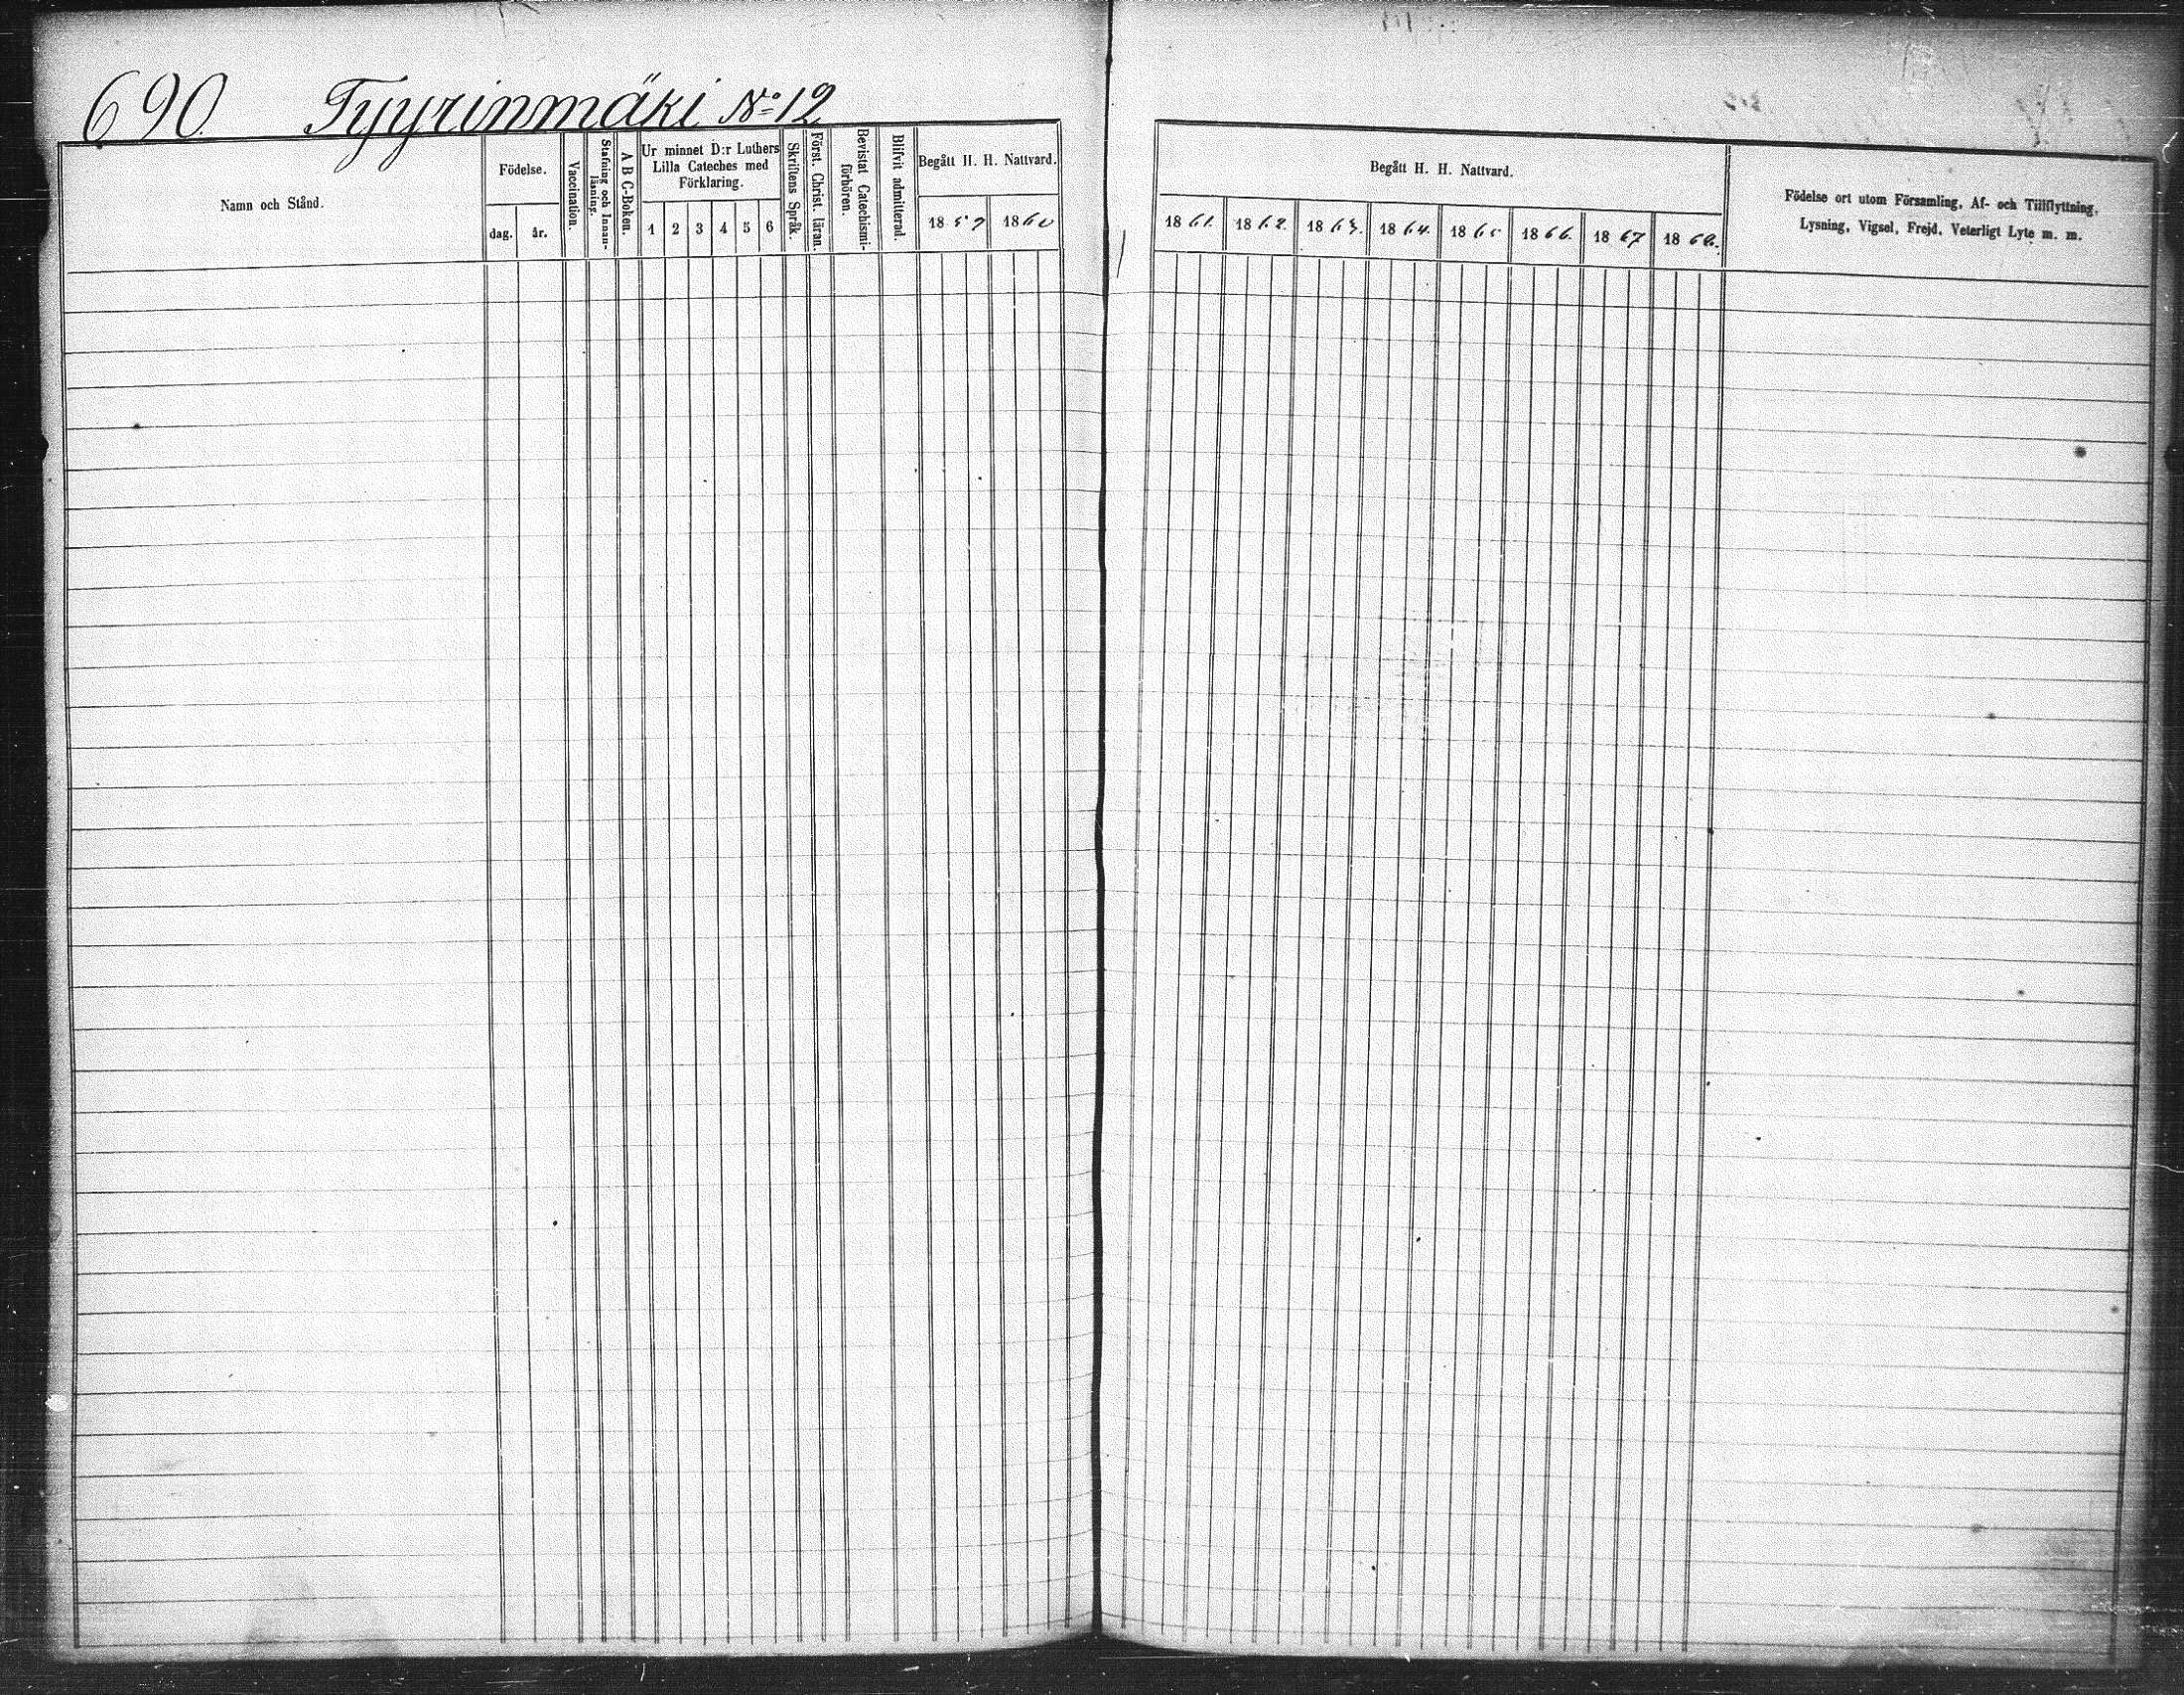 690. Tyyrinmäki No 12
Namn och Stånd.
Födelse.
dag. år.
Vaccination.
Stafning och Innan-
läsning.
A B C-Boken.
Ur minnet D:r Luthers
Lilla Cateches med
Förklaring.
1 2 3 4 5 6
Skriftens Språk.
Först. Christ. läran.
Bevistat Catechismi-
förhören.
Blifvit admitterad.
Begått H. H. Nattvard.
1859 1860
Begått H. H. Nattvard.
1861. 1862. 1863. 1864. 1865 1866. 1867 1868.
Födelse ort utom Församling, Af- och Tillflyttning,
Lysning, Vigsel, Frejd, Veterligt Lyte m. m.